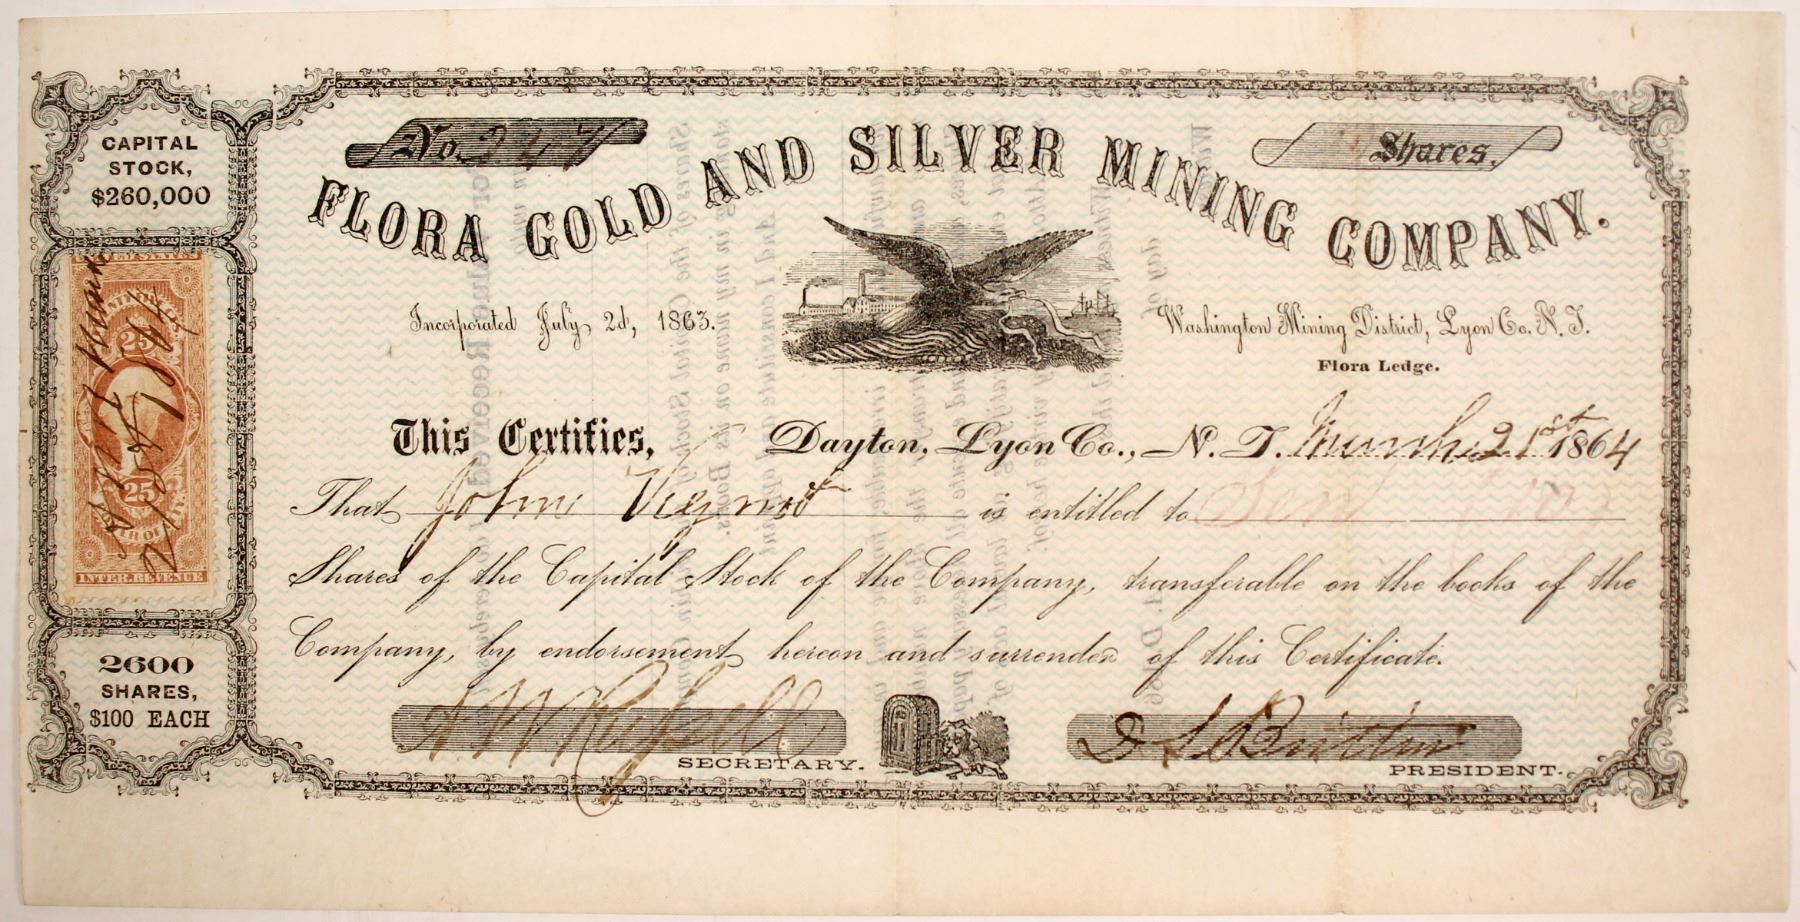 CAPITAL
STOCK,
$260,000
No. 247
Shares.
FLORA GOLD AND SILVER MINING COMPANY.
Incorporated July 2d, 1863.
Washington Mining District, Lyon Co. N. T.
Flora Ledge.
25
25
INTER. REVENUE
This Certifies,
Dayton, Lyon Co., N. T. March 21st 1864
That John is entitled to
Shares of the Capital Stock of the Company, transferable on the books of the
Company, by endorsement hereon and surrender of this Certificate.
2600
SHARES,
$100 EACH
SECRETARY.
D S
PRESIDENT.